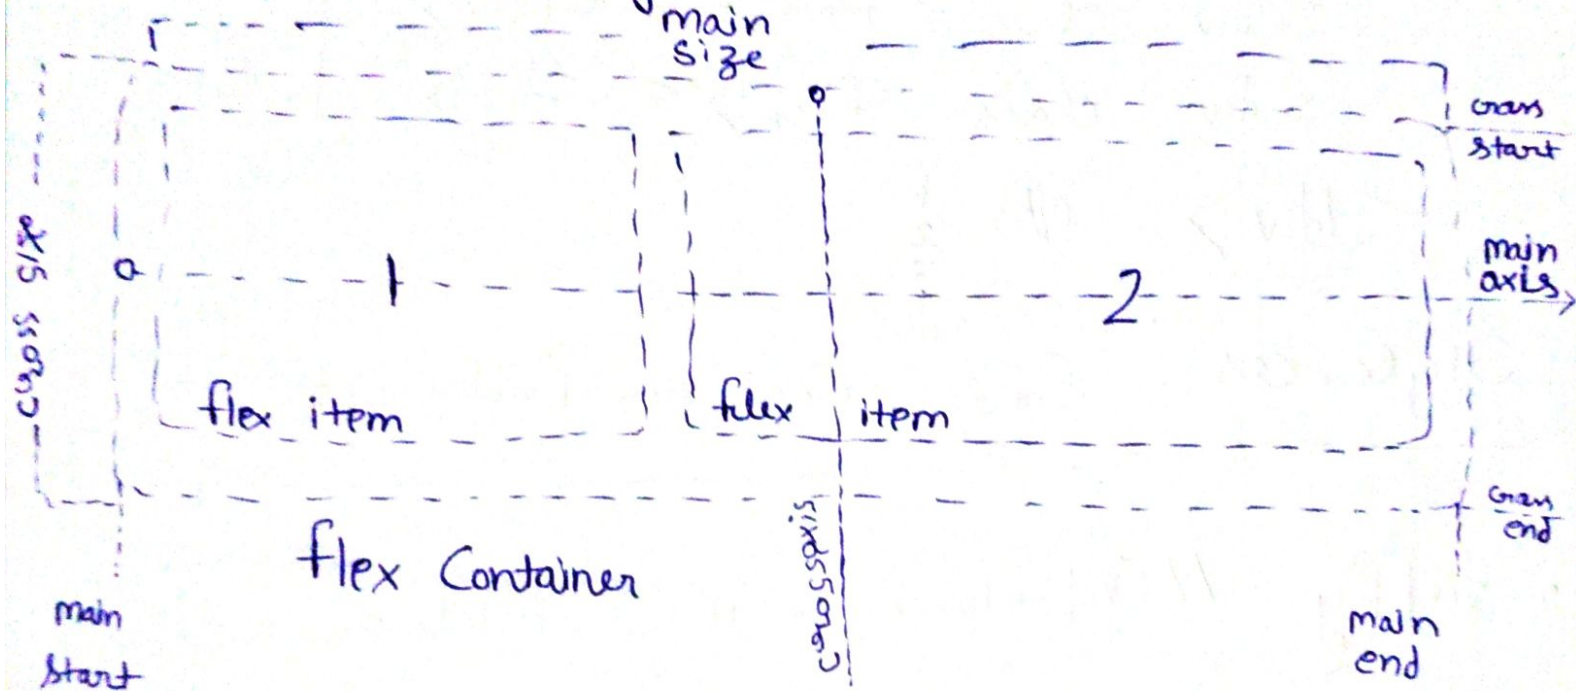 main
size
cross
start
cross axis
1
2
main
axis
flex item
flex item
cross
end
flex Container
crossaxis
main
start
main
end